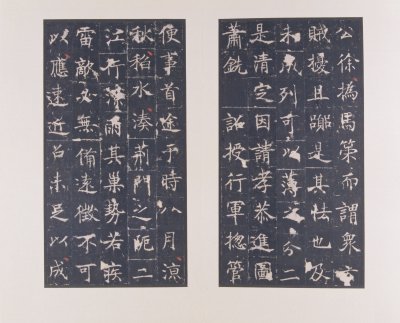 公徐撝禺策而謂衆
賊擾且踰是其怯也及
未成列可以蕩之分二
是清定因請孝恭進圖
蕭銑詔授行軍揔管
便事首途于時八月涼
秋稻水湊荊門之阨二
江行雨其巢勢若疾
雷敵又無備遠徵不可
以應速近召未足以成